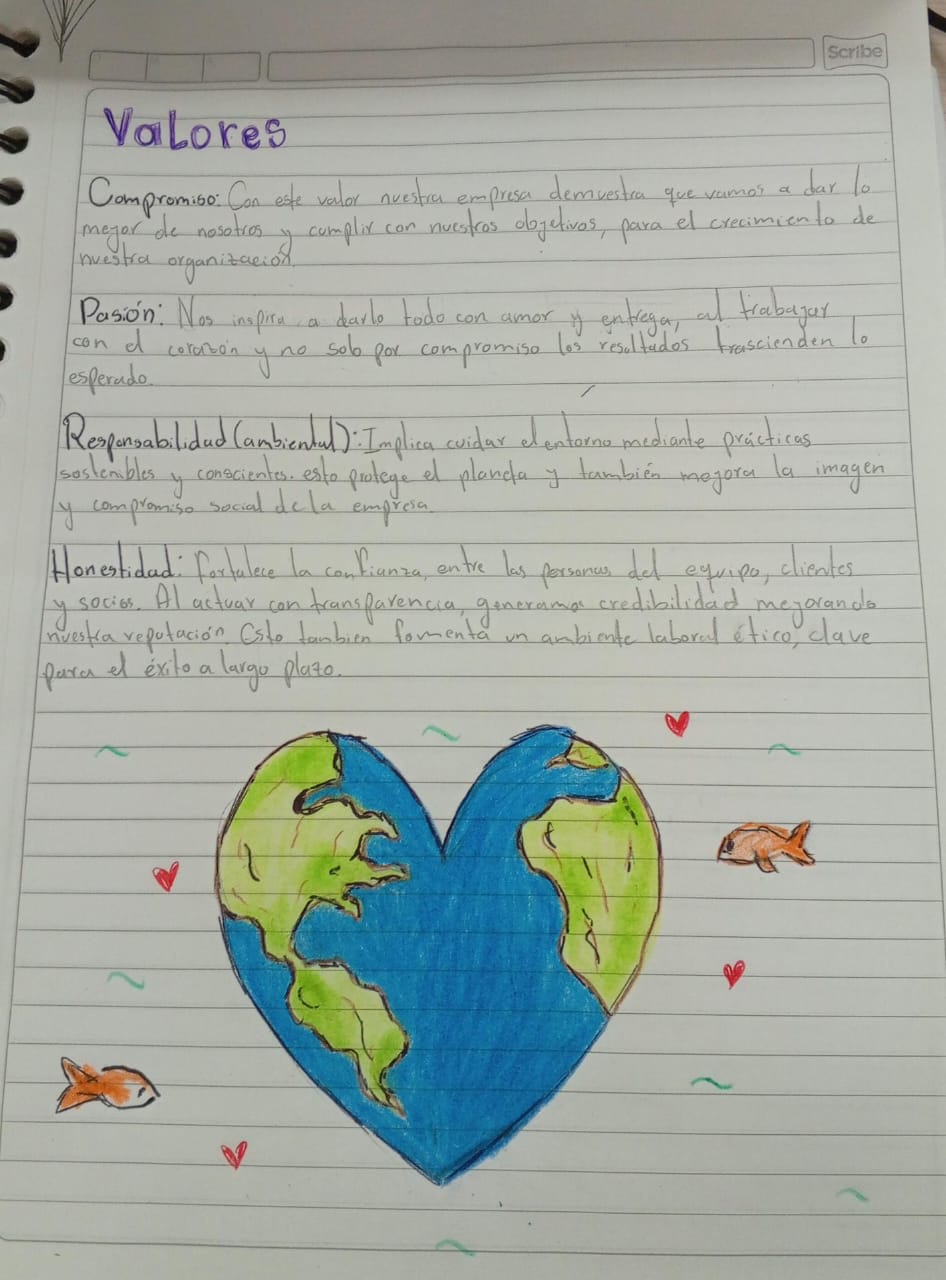 Scribe
Valores
Compromiso: Con este valor nuestra empresa demuestra que vamos a dar lo
mejor de nosotros y cumplir con nuestros objetivos, para el crecimiento de
nuestra organización.
Pasión: Nos inspira a darlo todo con amor y entrega, al trabajar
con el corazón y no solo por compromiso los resultados trascienden lo
esperado.
Responsabilidad (ambiental): Implica cuidar el entorno mediante prácticas
sostenibles y conscientes. esto protege el planeta y también mejora la imagen
y compromiso social de la empresa.
Honestidad: Fortalece la confianza, entre las personas del equipo, clientes
y socios. Al actuar con transparencia, generamos credibilidad mejorando
nuestra reputación. Esto tambien fomenta un ambiente laboral ético, clave
para el éxito a largo plazo.